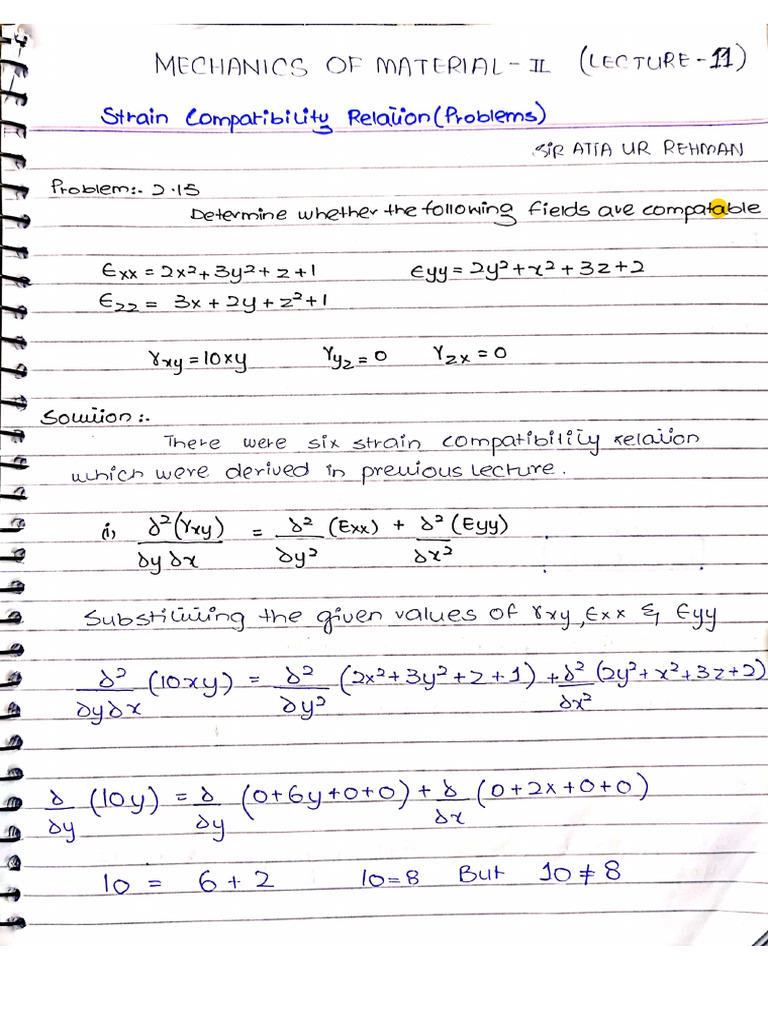 MECHANICS OF MATERIAL - II (LECTURE - 11)
Strain Compatibility Relation (Problems)
SIR ATTA UR REHMAN
Problem:- 2.15
Determine whether the following fields are compatable
Exx = 2x² + 3y² + z + 1 Eyy = 2y² + x² + 3z + 2
Ezz = 3x + 2y + z² + 1
γxy = 10xy γyz = 0 γzx = 0
Solution:-
There were six strain compatibility relation
which were derived in previous lecture.
(i) ∂²(γxy)/∂y∂x = ∂²/∂y² (Exx) + ∂²(Eyy)/∂x²
Substituting the given values of γxy, Exx & Eyy
∂²/∂y∂x (10xy) = ∂²/∂y² (2x² + 3y² + z + 1) + ∂²/∂x² (2y² + x² + 3z + 2)
∂/∂y (10y) = ∂/∂y (0+6y+0+0) + ∂/∂x (0+2x+0+0)
10 = 6 + 2 10 = 8 But 10 ≠ 8